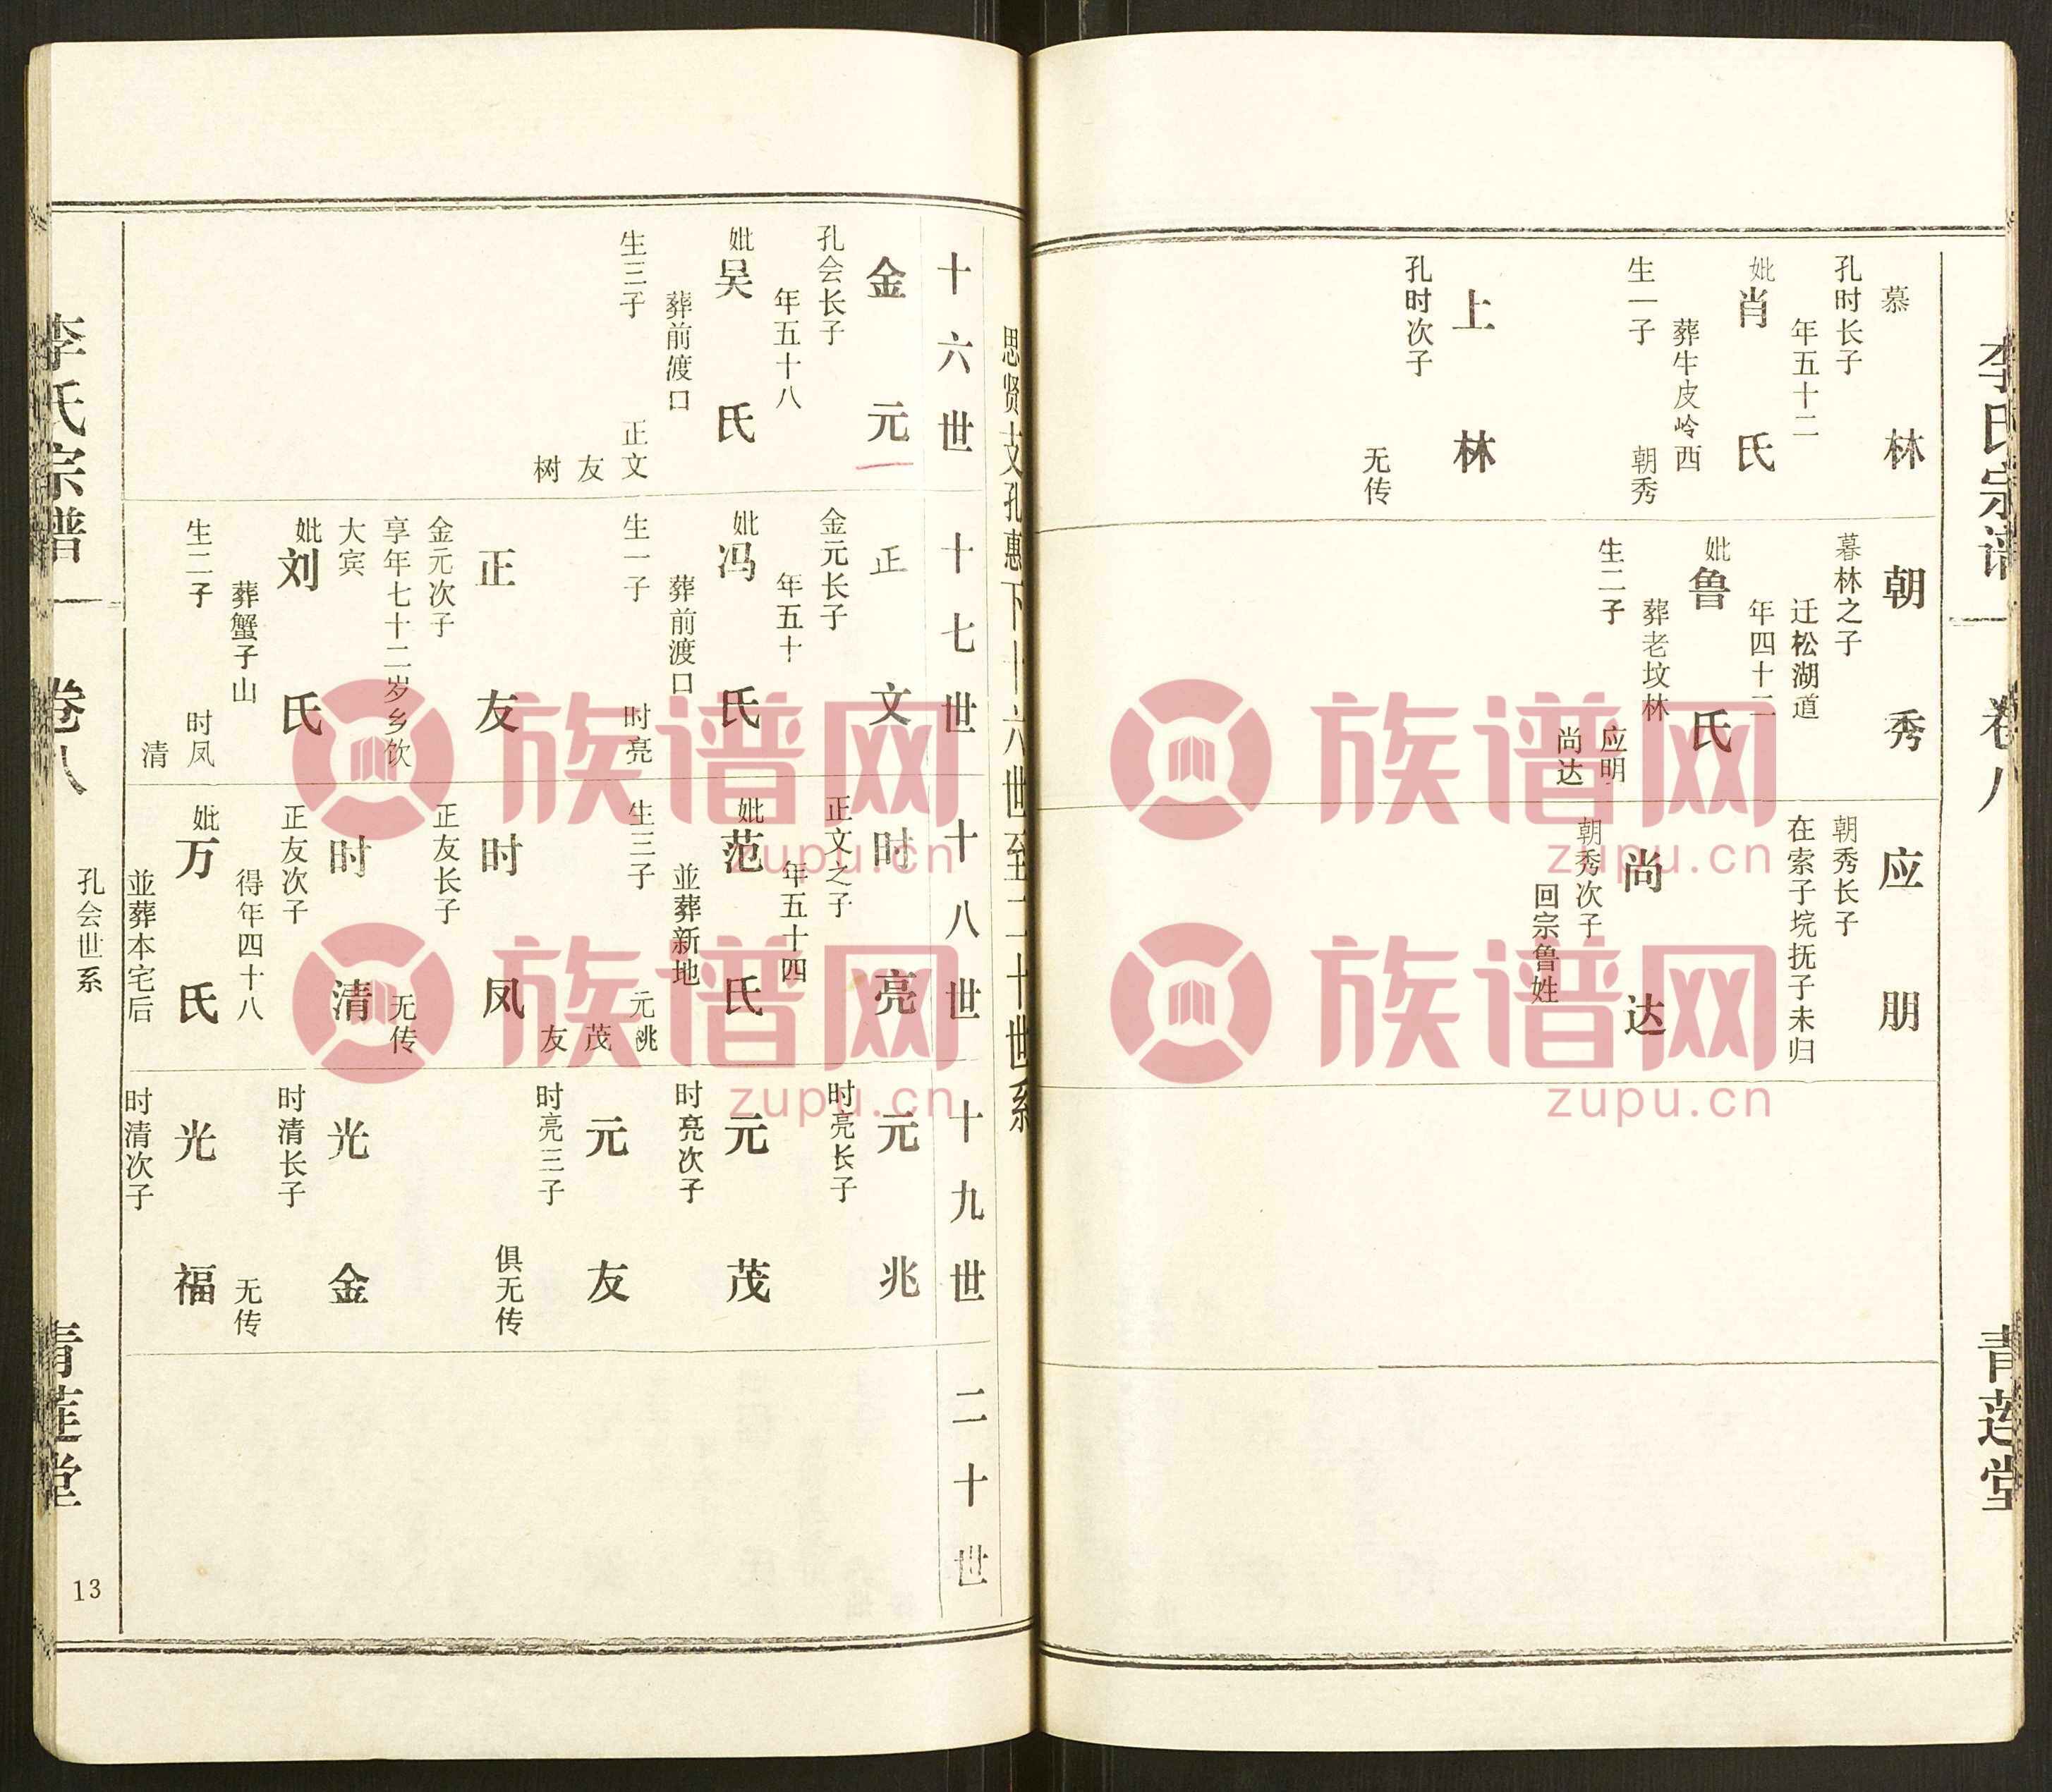 李氏宗谱
卷八
青莲堂
慕林
孔时长子
年五十二
妣肖氏
葬牛皮岭西
生一子
朝秀
上林
孔时次子
无传
朝秀
暮林之子
迁松湖道
年四十二
妣鲁氏
葬老坟林
生二子
应明
尚达
应朋
朝秀长子
在索子垸抚子未归
尚达
朝秀次子
回宗鲁姓
思贤支孔惠下十六世至二十世系
十六世
十七世
十八世
十九世
二十世
金元
孔会长子
年五十八
妣吴氏
葬前渡口
生三子
正文
友
树
正文
金元长子
年五十
妣冯氏
葬前渡口
生一子
时亮
正友
金元次子
享年七十二岁乡饮
大宾
妣刘氏
葬蟹子山
生二子
时凤
清
时亮
正文之子
年五十四
妣范氏
並葬新地
生三子
元兆
茂
友
时凤
正友长子
无传
时清
正友次子
得年四十八
妣万氏
並葬本宅后
元兆
时亮长子
元茂
时亮次子
元友
时亮三子
俱无传
光金
时清长子
无传
光福
时清次子
李氏宗谱
卷八
孔会世系
青莲堂
13
族谱网
zupu.cn
族谱网
zupu.cn
族谱网
zupu.cn
族谱网
zupu.cn